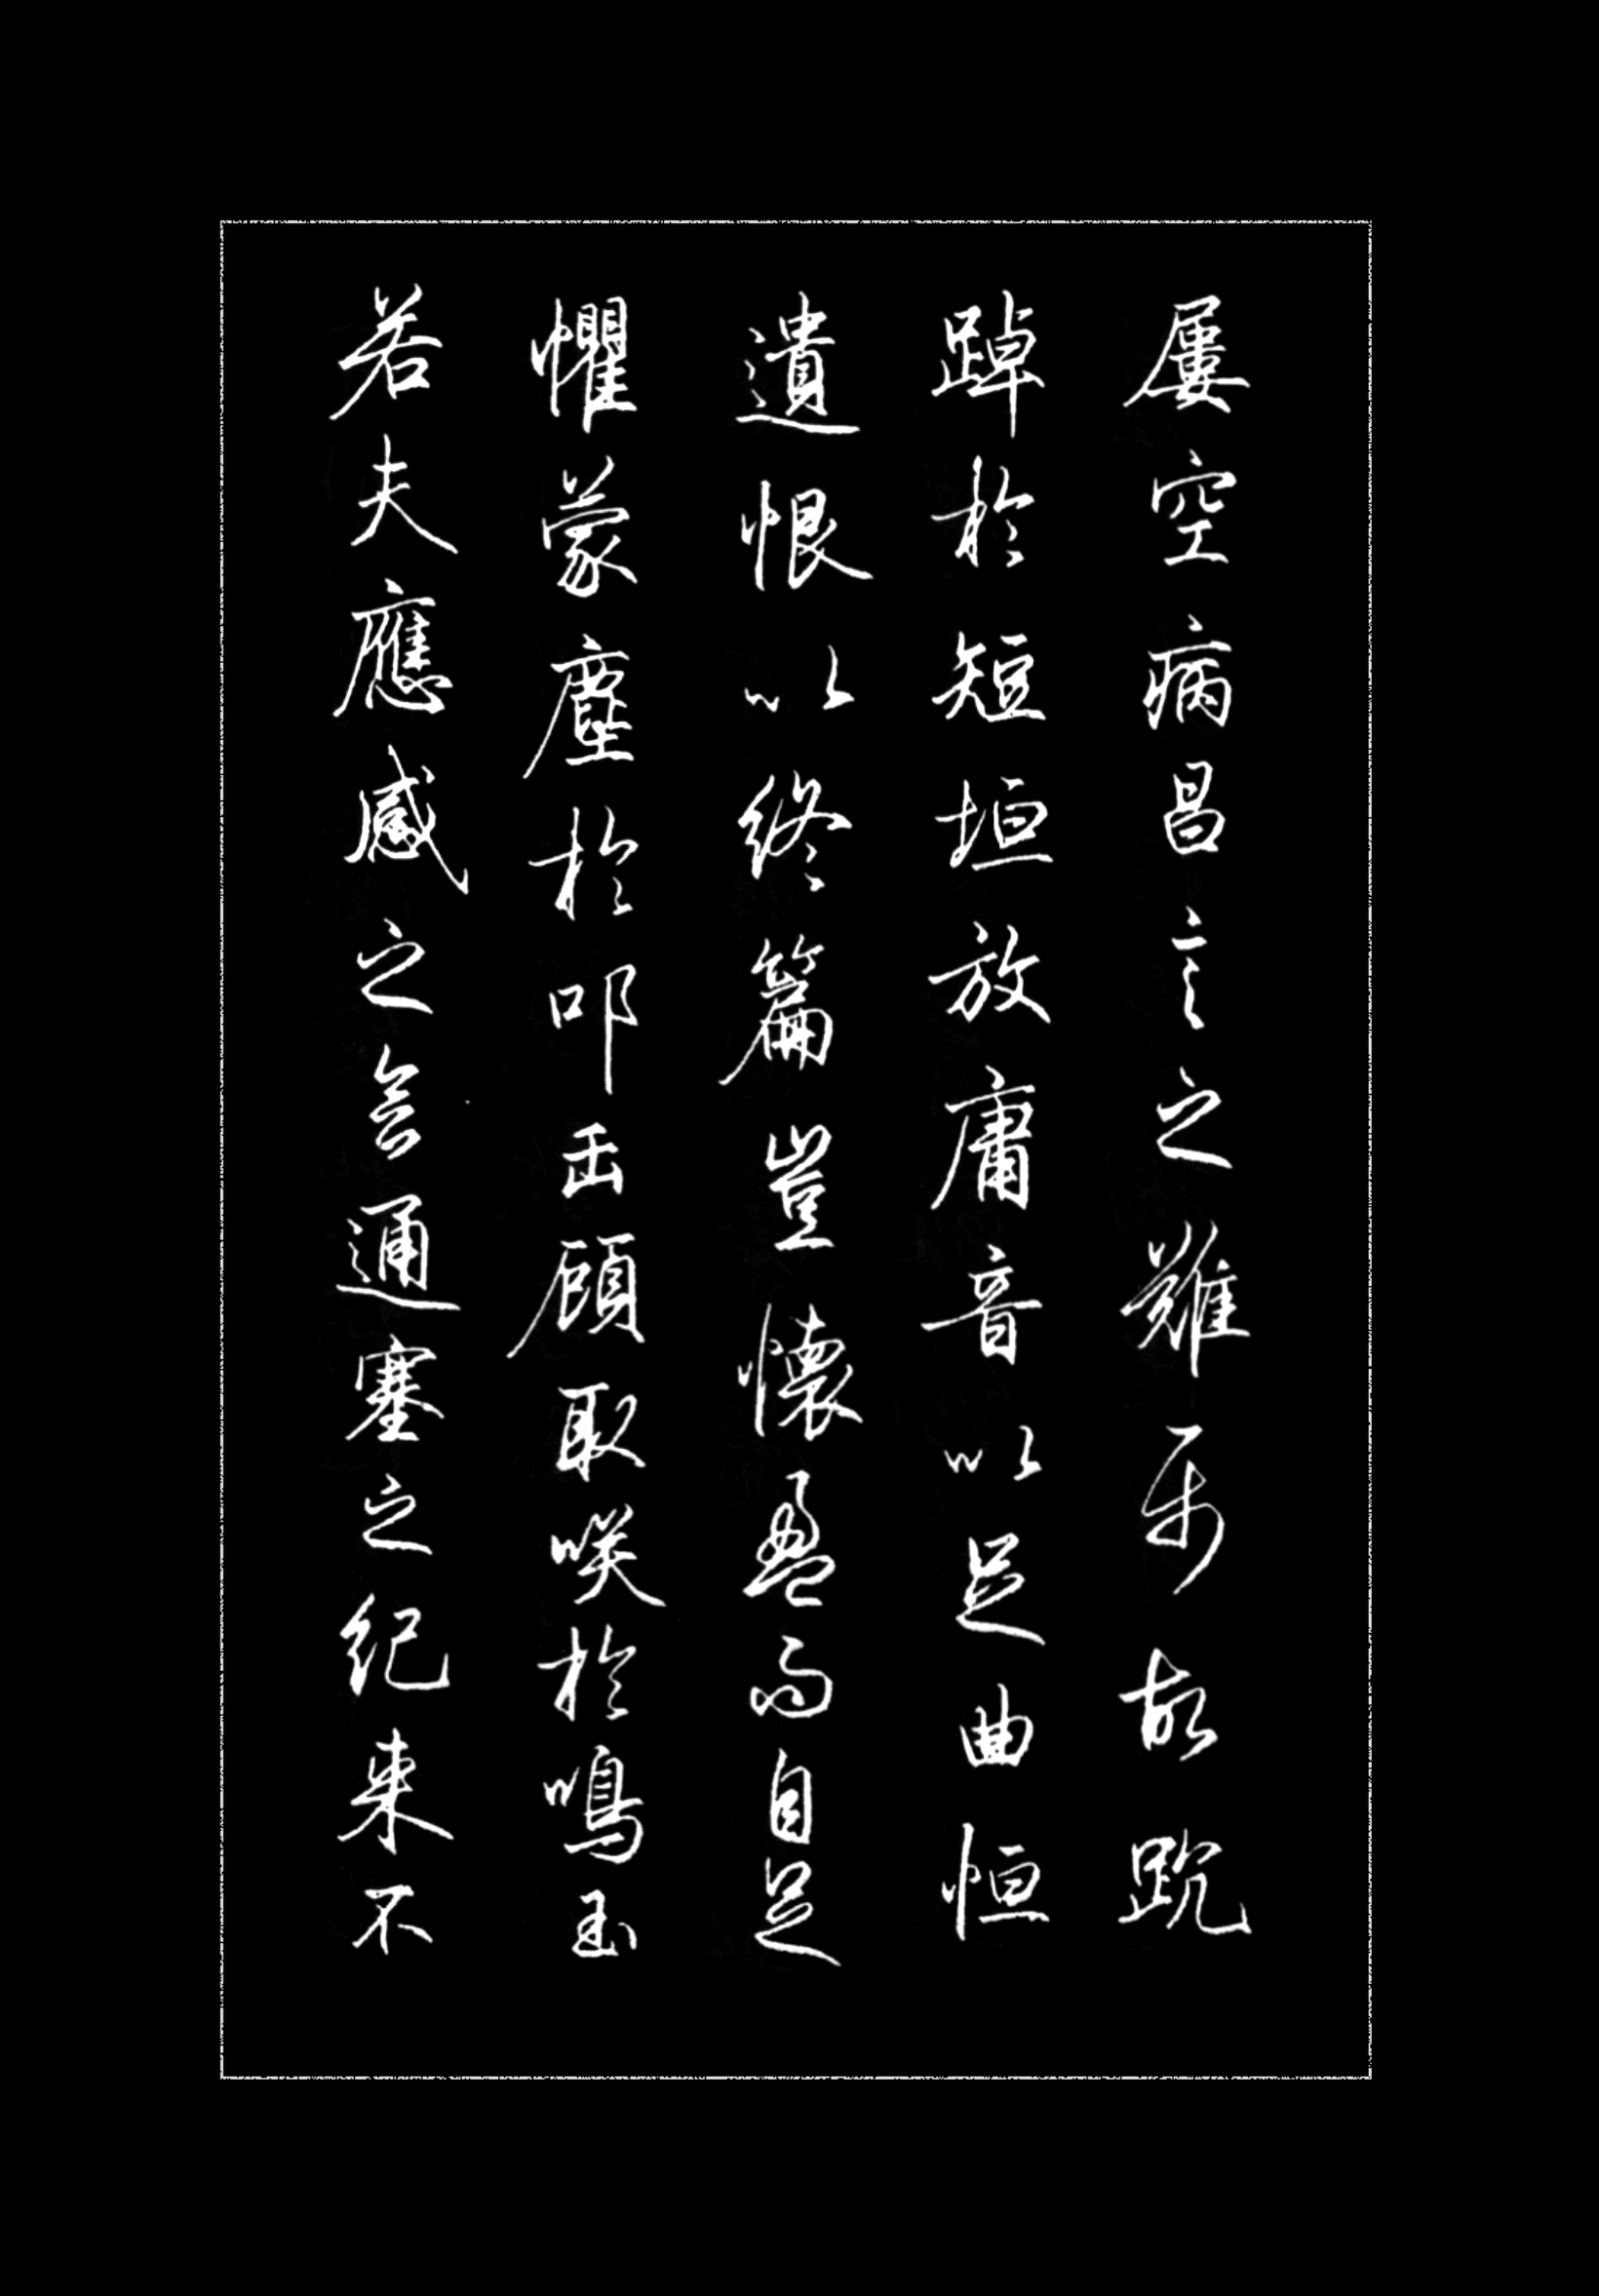 屢空病昌言之難属故跪
踔於短垣放庸音以足曲恒
遺恨以終篇豈懷盈而自足
懼蒙塵於叩缶顧取笑於鳴玉
若夫應感之會通塞之紀来不